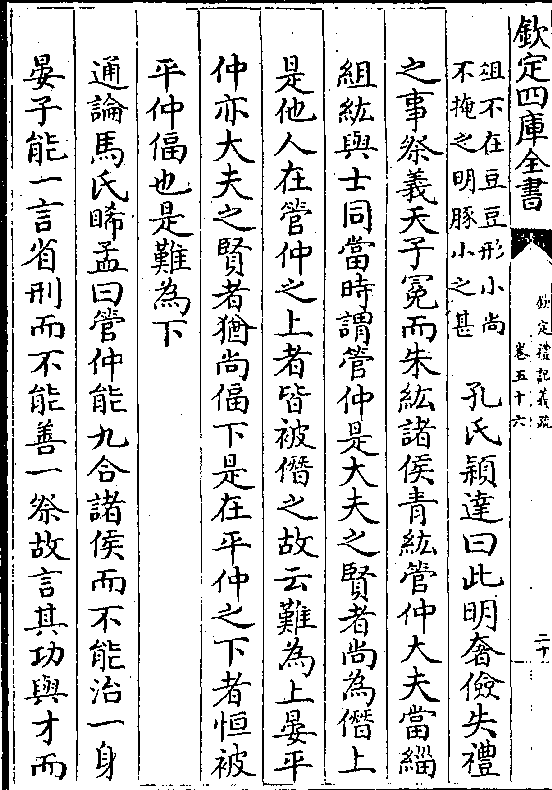 欽定四庫全書
欽定禮記義疏
卷五十六
二十
俎不在豆豆形小尚
不掩之明豚小之甚
孔氏穎達曰此明奢儉失禮
之事祭義天子冕而朱紘諸侯青紘管仲大夫當緇
組紘與士同當時謂管仲是大夫之賢者尚為僭上
是他人在管仲之上者皆被僭之故云難為上晏平
仲亦大夫之賢者猶尚偪下是在平仲之下者恒被
平仲偪也是難為下
通論馬氏睎孟曰管仲能九合諸侯而不能治一身
晏子能一言省刑而不能善一祭故言其功與才而